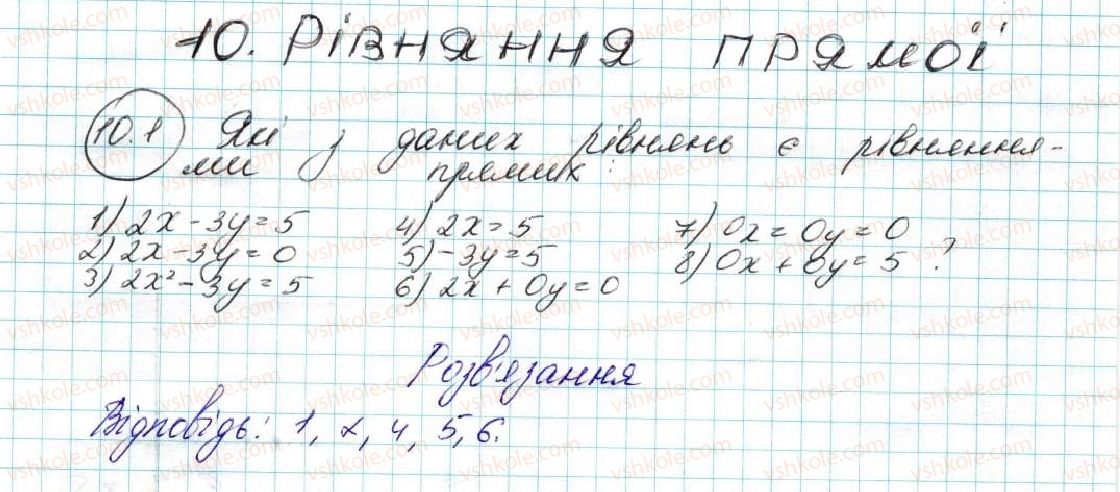 10. Рівняння прямої
10.1 Які з даних рівнянь є рівняння-
ми прямих:
1) 2x - 3y = 5 4) 2x = 5 7) 0x = 0y = 0
2) 2x - 3y = 0 5) -3y = 5 8) 0x + 0y = 5 ?
3) 2x² - 3y = 5 6) 2x + 0y = 0
Розв'язання
Відповідь: 1, 2, 4, 5, 6.